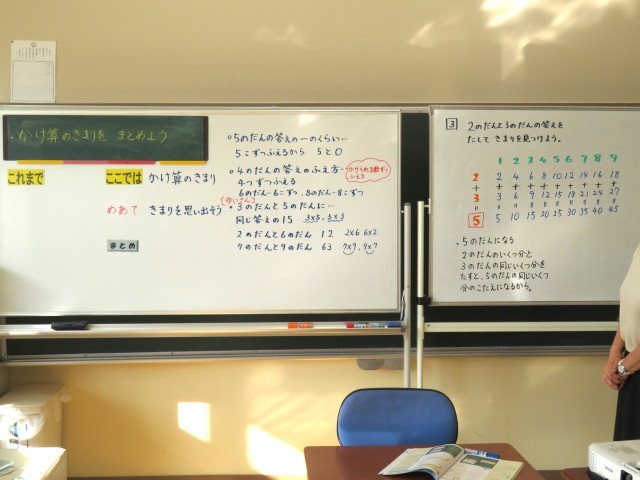 かけ算のきまりを まとめよう
これまで
ここでは かけ算のきまり
めあて きまりを思い出そう
まとめ
5のだんの答えの一のくらい…
5こずつふえるから 5と0
4のだんの答えのふえ方…
かけられる数ずつ
ふえる
4つずつふえる
6のだん…6こずつ、8のだん…8こずつ
(ゆいさん)
3のだんと5のだんに…
同じ答えの15 3×5、5×3
2のだんと6のだん 12 2×6 6×2
7のだんと9のだん 63 7×9、9×7
3 2のだんと3のだんの答えを
たして きまりを見つけよう。
1 2 3 4 5 6 7 8 9
2 2 4 6 8 10 12 14 16 18
+ + + + + + + + + +
3 3 6 9 12 15 18 21 24 27
〃 〃 〃 〃 〃 〃 〃 〃 〃 〃
5 5 10 15 20 25 30 35 40 45
・5のだんになる
2のだんのいくつ分と
3のだんの同じいくつ分を
たすと、5のだんの同じいくつ
分のこたえになるから。